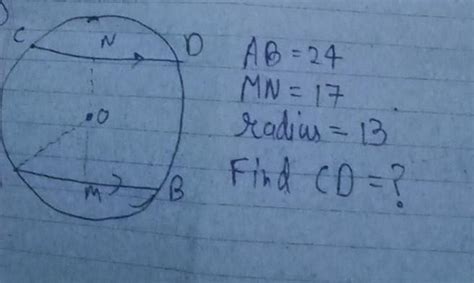 C N D
AB = 24
MN = 17
O
radius = 13
M B
Find CD = ?